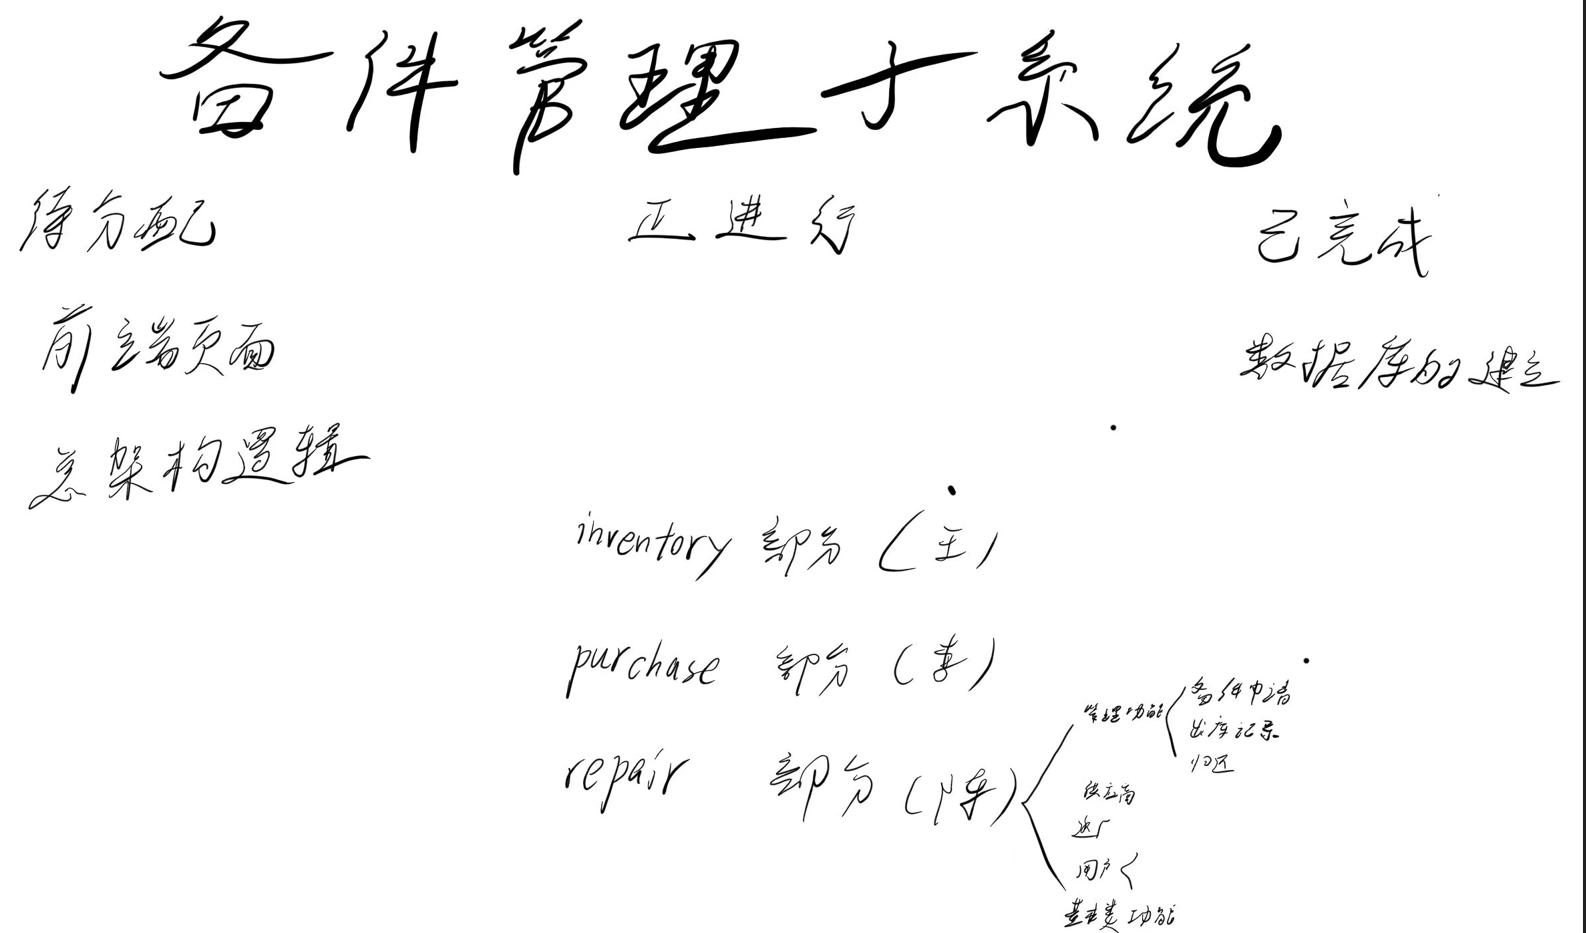 备件管理子系统
待分配
正进行
已完成
前端页面
数据库的建立
总架构逻辑
inventory 部分 (王)
purchase 部分 (李)
repair 部分 (陈)
管理功能
备件申请
出库记录
归还
供应商
返厂
用户
基类功能